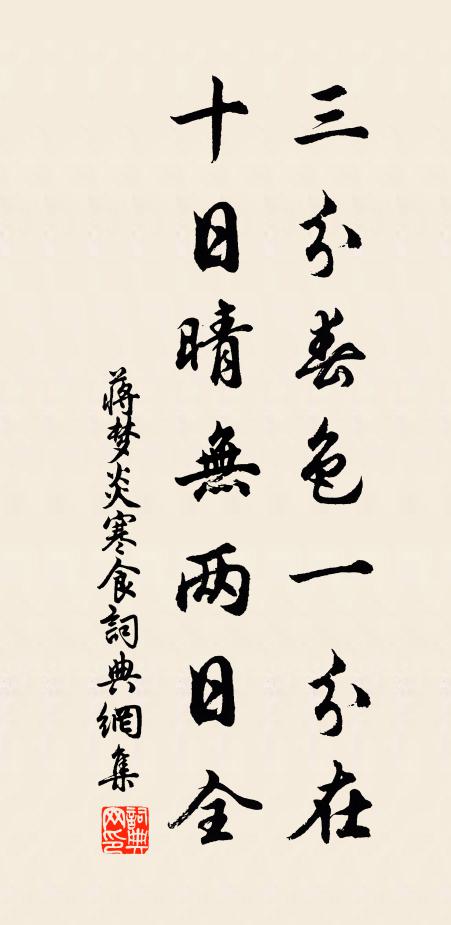 三分春色一分在
十日晴無两日全
蒋梦炎寒食詞典網集
詞典网印